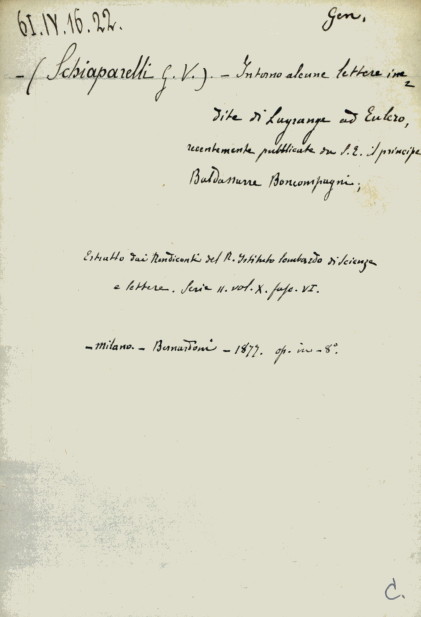 61.IV.16.22.
Gen.
- (Schiaparelli G. V.). - Intorno alcune lettere ine=
dite di Lagrange ad Eulero,
recentemente pubblicate da S. E. il principe
Baldassarre Boncompagni;
Estratto dai Rendiconti del R. Istituto lombardo di Scienze
e lettere. Serie II. vol. X. fasc. VI.
- Milano. - Bernardoni - 1877. op. in - 8°.
C.